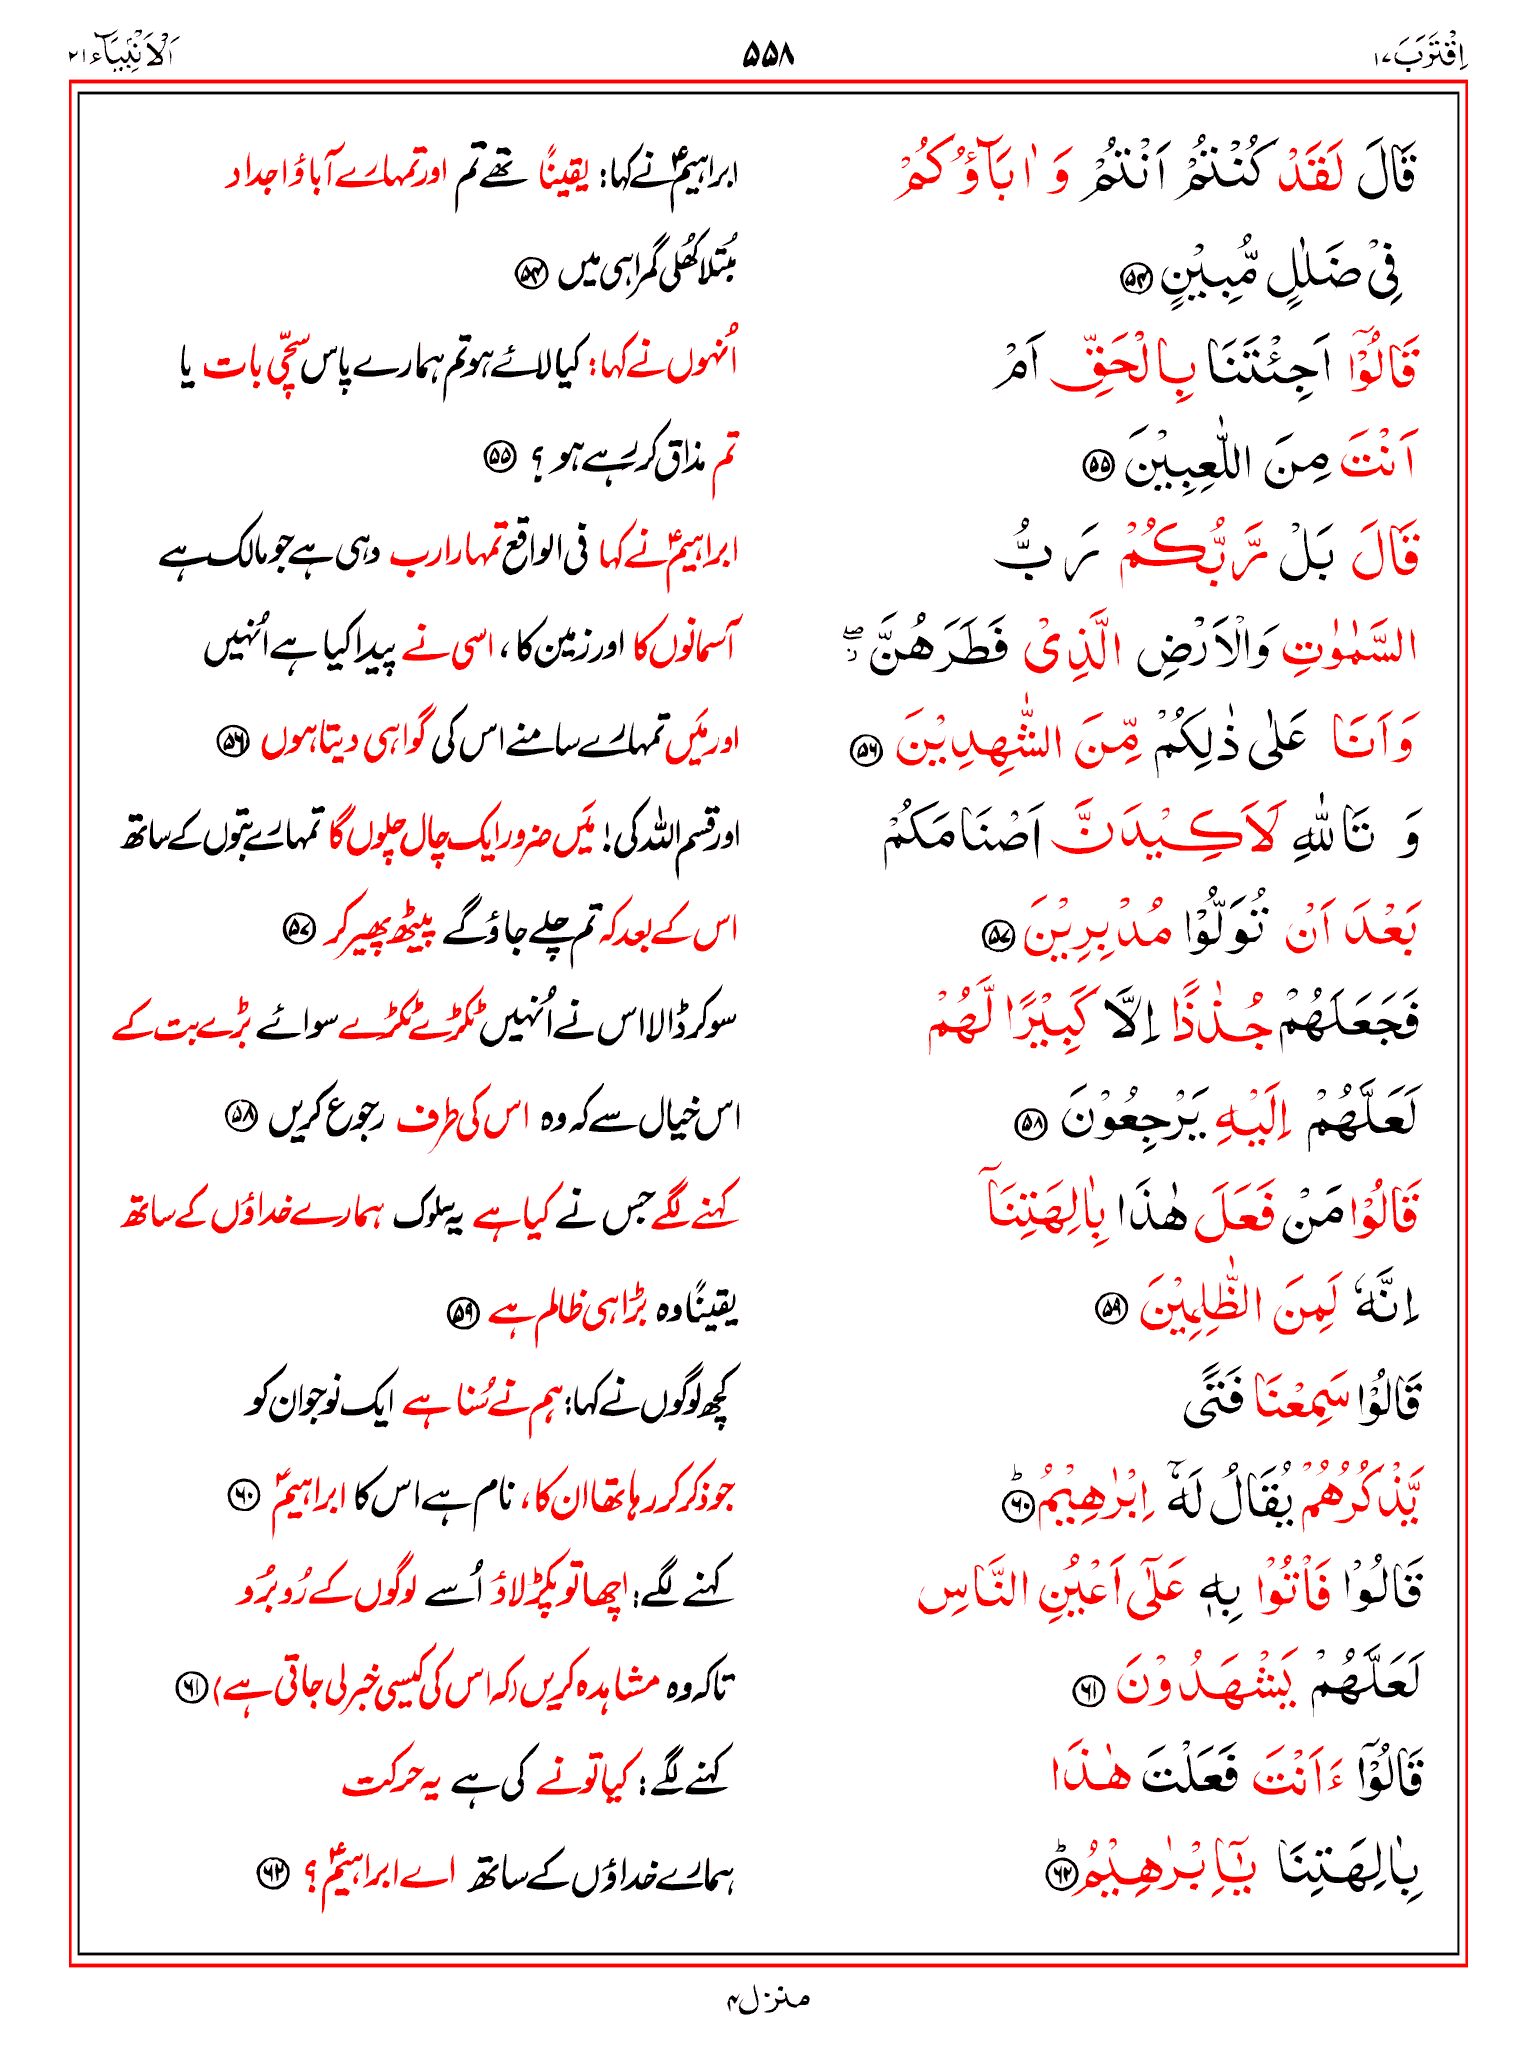 اِقْتَرَبَ ١٧ ۵۵۸ اَلْاَنْۢبِيَآء ٢١
قَالَ لَقَدْ كُنْتُمْ اَنْتُمْ وَ اٰبَآؤُكُمْ ابراہیمؑ نے کہا: یقیناً تھے تم اور تمہارے آباؤ اجداد
فِيْ ضَلٰلٍ مُّبِيْنٍ ﴿۵۴﴾ مُبتلا کھُلی گمراہی میں ﴿۵۴﴾
قَالُوْٓا اَجِئْتَنَا بِالْحَقِّ اَمْ اُنہوں نے کہا: کیا لائے ہو تم ہمارے پاس سچّی بات یا
اَنْتَ مِنَ اللّٰعِبِيْنَ ﴿۵۵﴾ تم مذاق کر رہے ہو ؟ ﴿۵۵﴾
قَالَ بَلْ رَّبُّكُمْ رَبُّ ابراہیمؑ نے کہا فی الواقع تمہارا رب وہی ہے جو مالک ہے
السَّمٰوٰتِ وَالْاَرْضِ الَّذِيْ فَطَرَهُنَّ ۖز آسمانوں کا اور زمین کا، اسی نے پیدا کیا ہے اُنہیں
وَاَنَا عَلٰى ذٰلِكُمْ مِّنَ الشّٰهِدِيْنَ ﴿۵۶﴾ اور مَیں تمہارے سامنے اس کی گواہی دیتا ہوں ﴿۵۶﴾
وَ تَاللّٰهِ لَاَكِيْدَنَّ اَصْنَامَكُمْ اور قسم اللہ کی! مَیں ضرور ایک چال چلوں گا تمہارے بتوں کے ساتھ
بَعْدَ اَنْ تُوَلُّوْا مُدْبِرِيْنَ ﴿۵۷﴾ اس کے بعد کہ تم چلے جاؤ گے پیٹھ پھیر کر ﴿۵۷﴾
فَجَعَلَهُمْ جُذٰذًا اِلَّا كَبِيْرًا لَّهُمْ سو کر ڈالا اس نے اُنہیں ٹکڑے ٹکڑے سوائے بڑے بت کے
لَعَلَّهُمْ اِلَيْهِ يَرْجِعُوْنَ ﴿۵۸﴾ اس خیال سے کہ وہ اس کی طرف رجوع کریں ﴿۵۸﴾
قَالُوْا مَنْ فَعَلَ هٰذَا بِاٰلِهَتِنَآ کہنے لگے جس نے کیا ہے یہ سلوک ہمارے خداؤں کے ساتھ
اِنَّهٗ لَمِنَ الظّٰلِمِيْنَ ﴿۵۹﴾ یقیناً وہ بڑا ہی ظالم ہے ﴿۵۹﴾
قَالُوْا سَمِعْنَا فَتًى کچھ لوگوں نے کہا: ہم نے سُنا ہے ایک نوجوان کو
يَّذْكُرُهُمْ يُقَالُ لَهٗٓ اِبْرٰهِيْمُ ؕ﴿۶۰﴾ جو ذکر کر رہا تھا ان کا، نام ہے اس کا ابراہیمؑ ﴿۶۰﴾
قَالُوْا فَاْتُوْا بِهٖ عَلٰٓى اَعْيُنِ النَّاسِ کہنے لگے: اچھا تو پکڑ لاؤ اُسے لوگوں کے رُوبرُو
لَعَلَّهُمْ يَشْهَدُوْنَ ﴿۶۱﴾ تاکہ وہ مشاہدہ کریں (کہ اس کی کیسی خبر لی جاتی ہے) ﴿۶۱﴾
قَالُوْٓا ءَاَنْتَ فَعَلْتَ هٰذَا کہنے لگے: کیا تو نے کی ہے یہ حرکت
بِاٰلِهَتِنَا يٰٓاِبْرٰهِيْمُ ؕ﴿۶۲﴾ ہمارے خداؤں کے ساتھ اے ابراہیمؑ ؟ ﴿۶۲﴾
منزل ۴